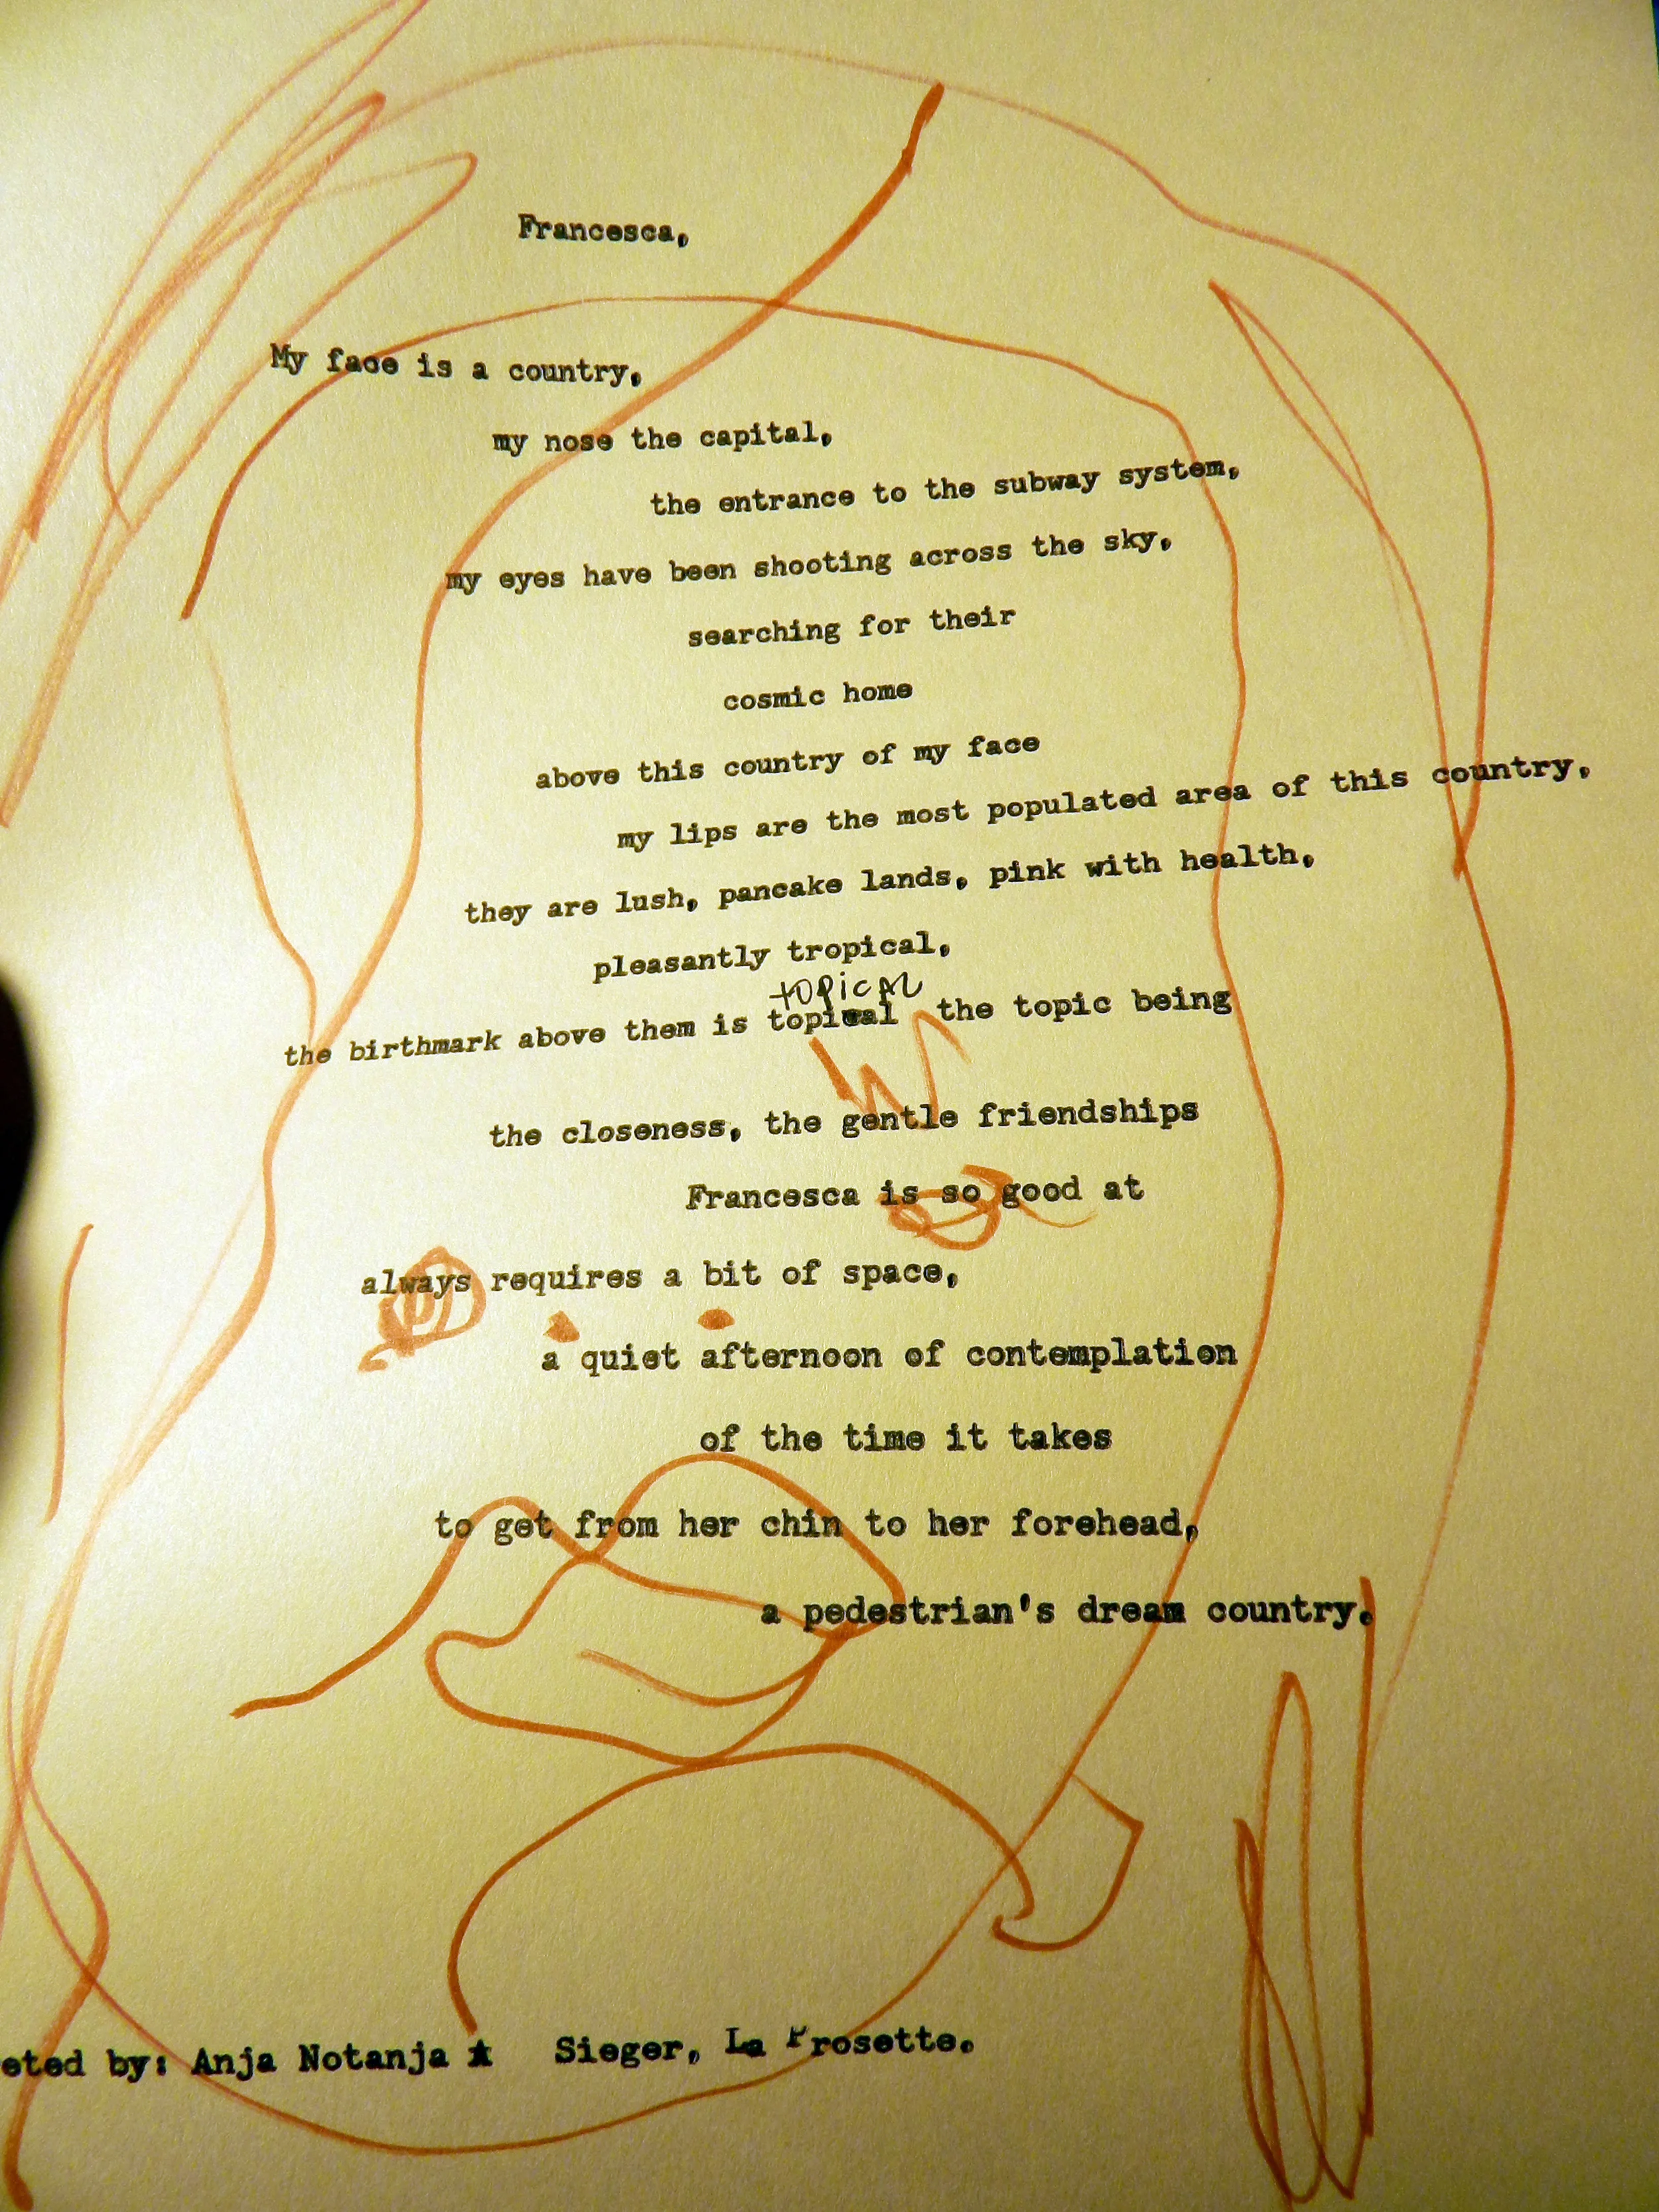 Francesca,
My face is a country,
my nose the capital,
the entrance to the subway system,
my eyes have been shooting across the sky,
searching for their
cosmic home
above this country of my face
my lips are the most populated area of this country,
they are lush, pancake lands, pink with health,
pleasantly tropical,
topical
the birthmark above them is topical the topic being
the closeness, the gentle friendships
Francesca is so good at
always requires a bit of space,
a quiet afternoon of contemplation
of the time it takes
to get from her chin to her forehead,
a pedestrian's dream country.
eted by: Anja Notanja Sieger, La Prosette.